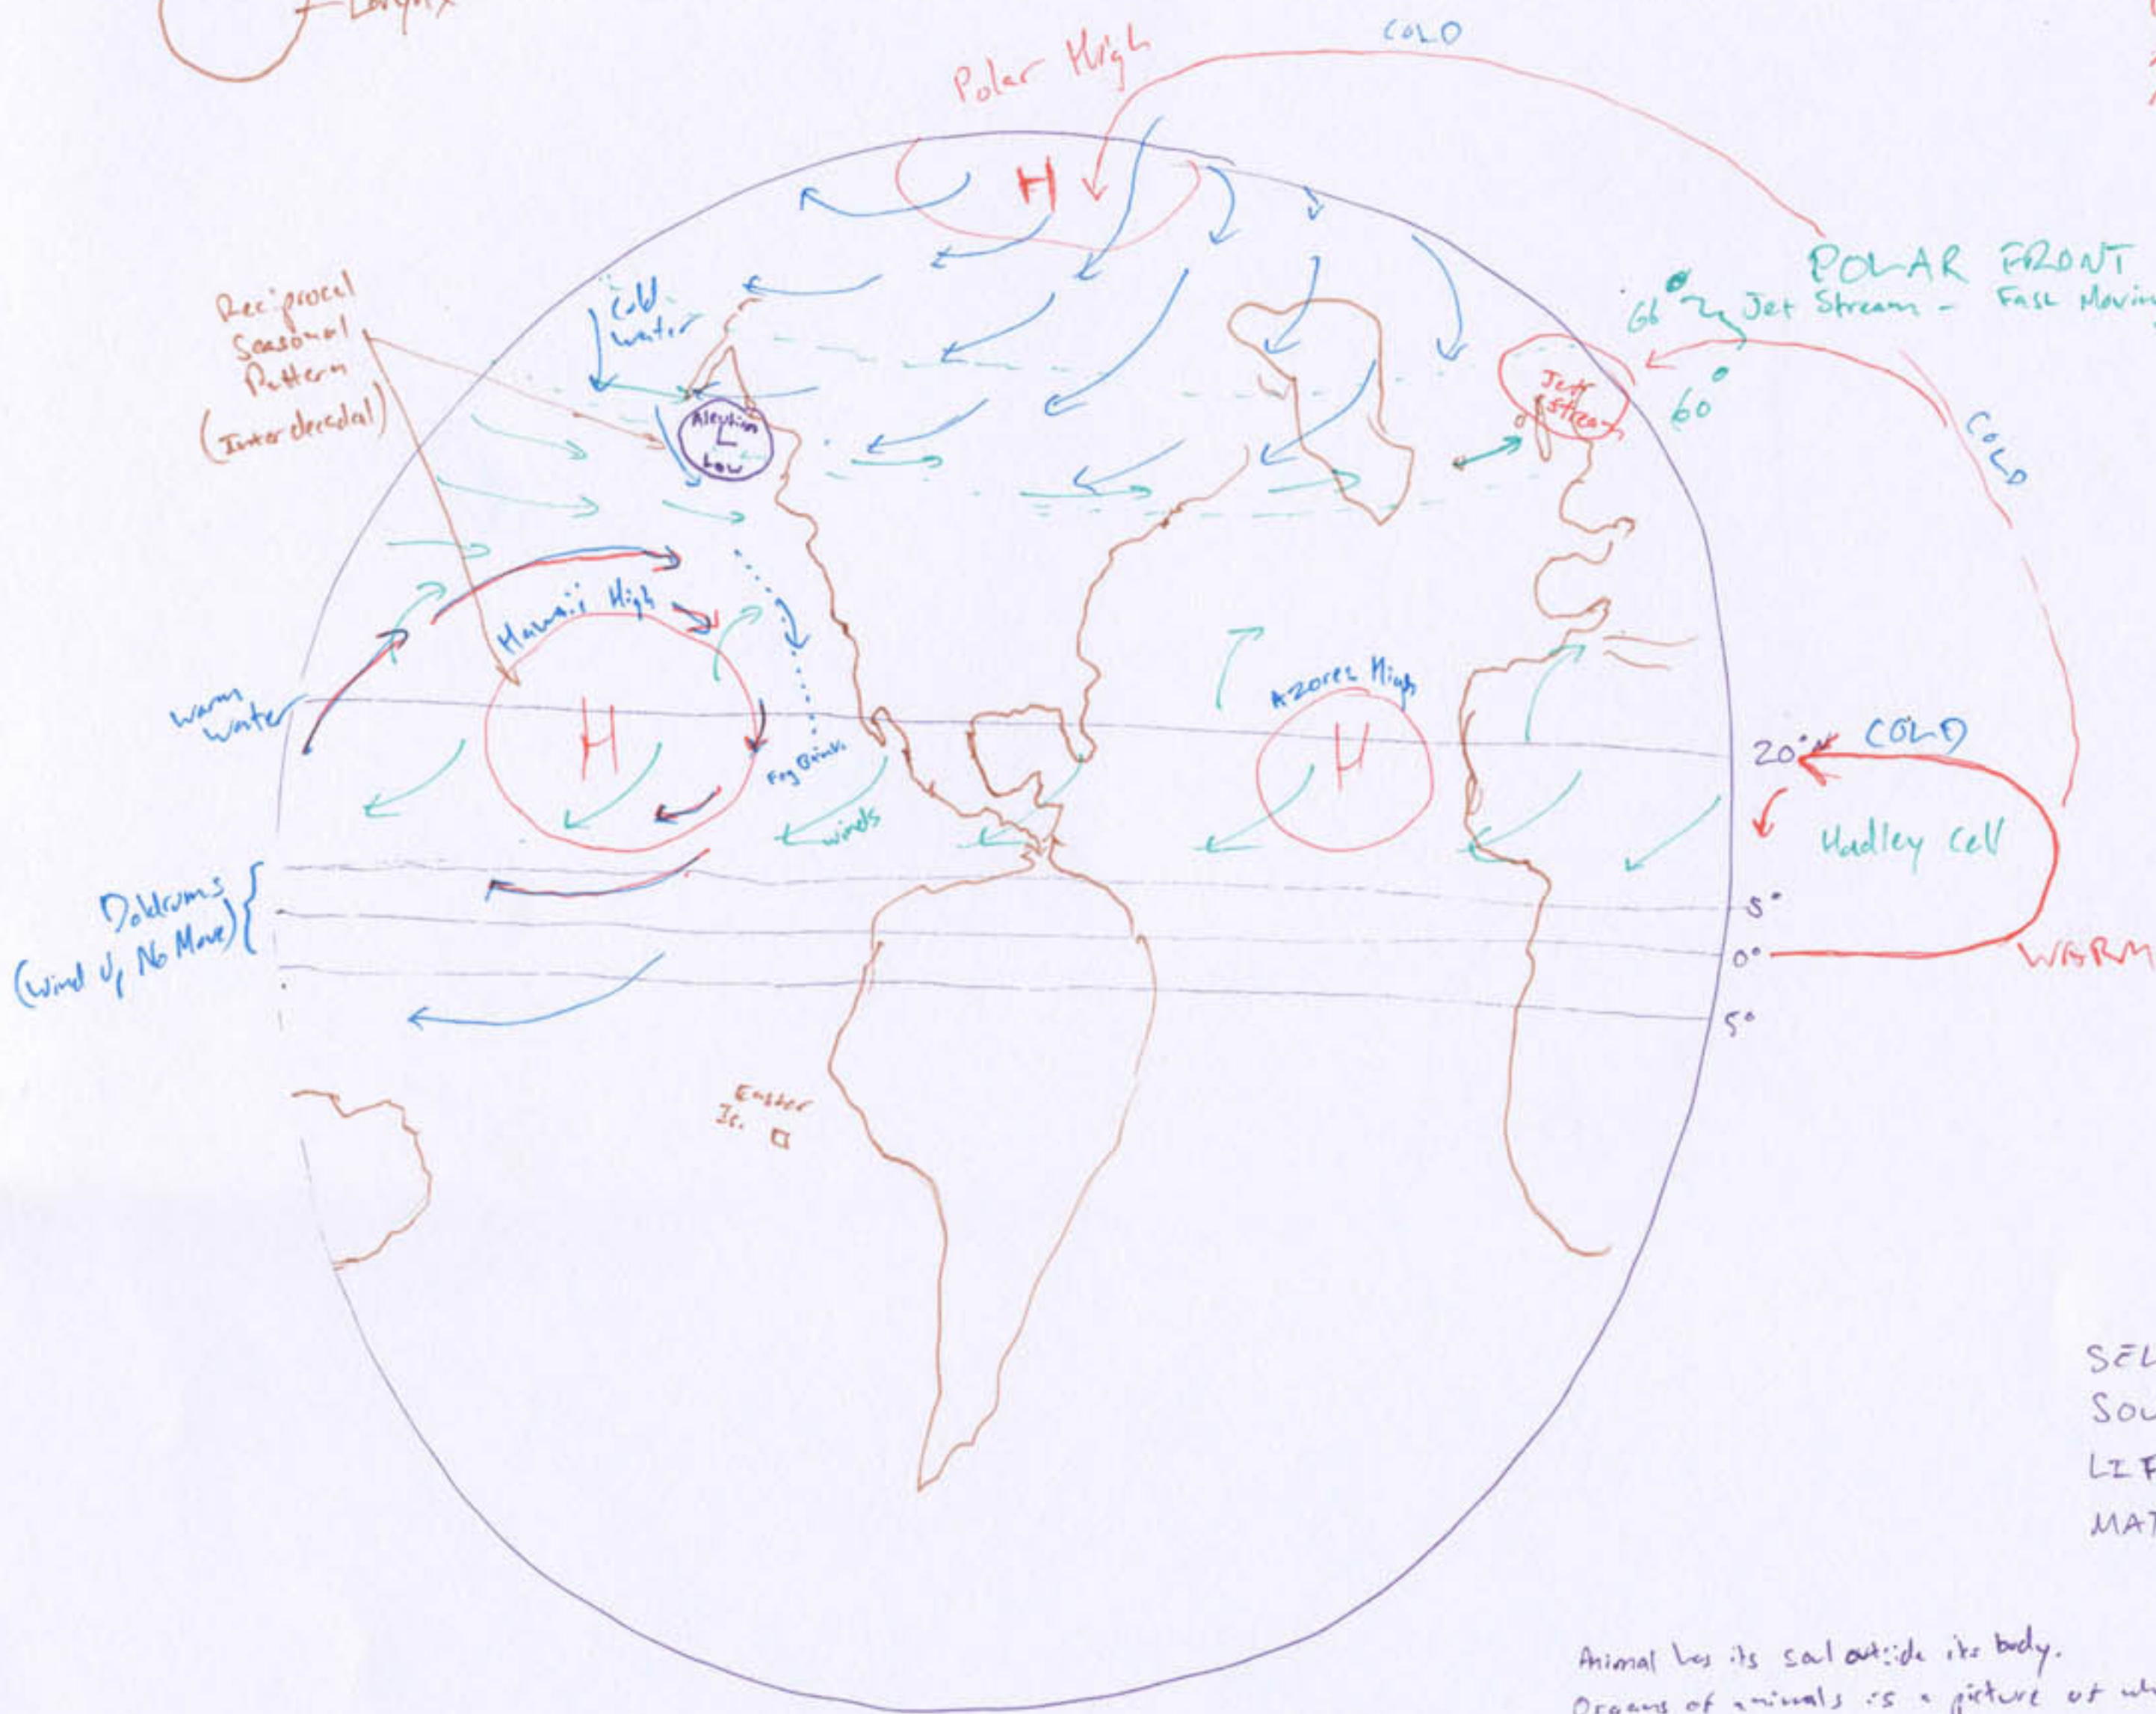 Larynx
COLD
Polar High
H
POLAR FRONT
66°
Jet Stream - Fast Movin
60°
Reciprocal
Seasonal
Pattern
(Inter decadal)
Cold
water
Aleutian
L
Low
Jet
Stream
COLD
Hawaii High
H
Azores High
H
Warm
water
Fog Bank
winds
20°N
COLD
Hadley Cell
WARM
Doldrums
(Wind Up No Move)
5°
0°
5°
Easter
Is.
SEL
SOU
LIF
MAT
Animal has its soul outside its body.
Organs of animals is a picture of wh